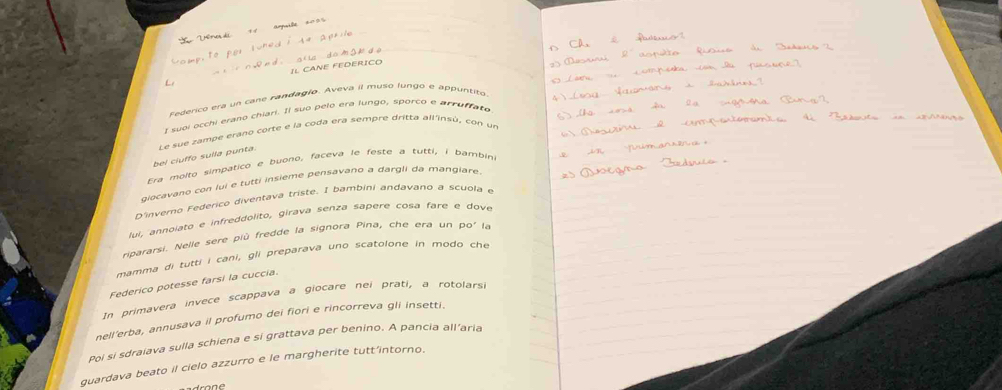 Venerdì aprile
Compito per lunedì 12 aprile
alle domande
IL CANE FEDERICO
Federico era un cane randagio. Aveva il muso lungo e appuntito.
I suoi occhi erano chiari. Il suo pelo era lungo, sporco e arruffato
Le sue zampe erano corte e la coda era sempre dritta all'insù, con un
bel ciuffo sulla punta.
Era molto simpatico e buono, faceva le feste a tutti, i bambini
giocavano con lui e tutti insieme pensavano a dargli da mangiare.
D'inverno Federico diventava triste. I bambini andavano a scuola e
lui, annoiato e infreddolito, girava senza sapere cosa fare e dove
ripararsi. Nelle sere più fredde la signora Pina, che era un po' la
mamma di tutti i cani, gli preparava uno scatolone in modo che
Federico potesse farsi la cuccia.
In primavera invece scappava a giocare nei prati, a rotolarsi
nell'erba, annusava il profumo dei fiori e rincorreva gli insetti.
Poi si sdraiava sulla schiena e si grattava per benino. A pancia all'aria
guardava beato il cielo azzurro e le margherite tutt'intorno.
1) Chi è Federico?
2) Descrivi l'aspetto fisico di Federico?
3) Come si comporta con le persone?
4) Cosa facevano i bambini?
5) Che cosa fa la signora Pina?
6) Descrivi il comportamento di Federico in inverno
e in primavera.
Disegna Federico.